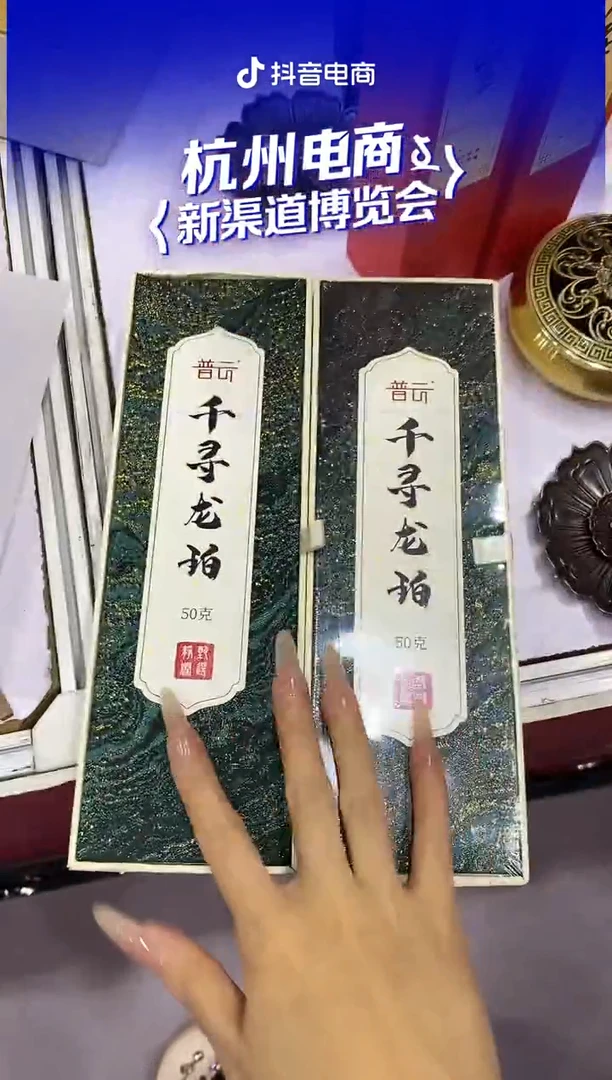 抖音电商
杭州电商
新渠道博览会
普云
千寻龙珀
50克
普云
千寻龙珀
50克